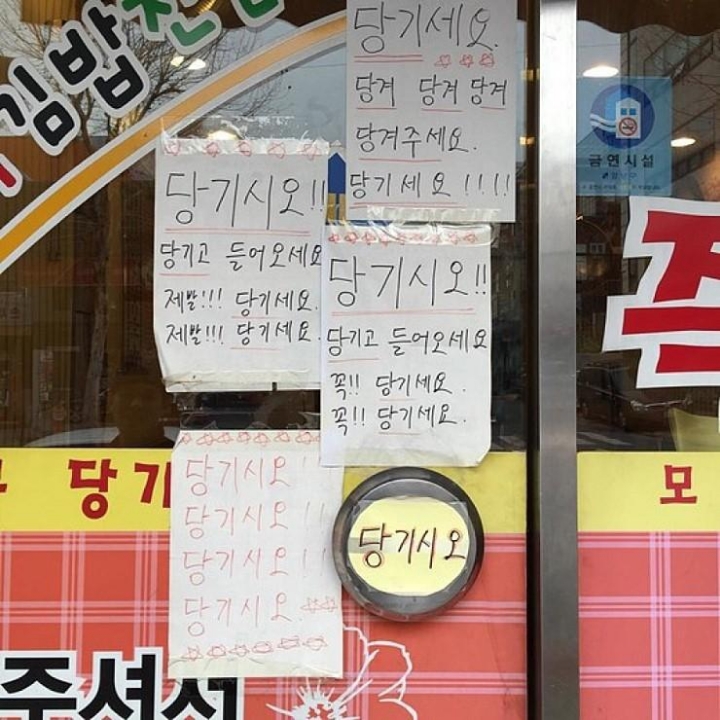 김밥천
당기세요.
당겨 당겨 당겨
당겨주세요.
당기세요!!!!
금연시설
당기시오!!
당기고 들어오세요
제발!!! 당기세요.
제발!!! 당기세요.
당기시오!!
당기고 들어오세요
꼭!! 당기세요.
꼭!! 당기세요.
당기
모
당기시오!
당기시오!!
당기시오!!
당기시오.
당기시오
주셔서